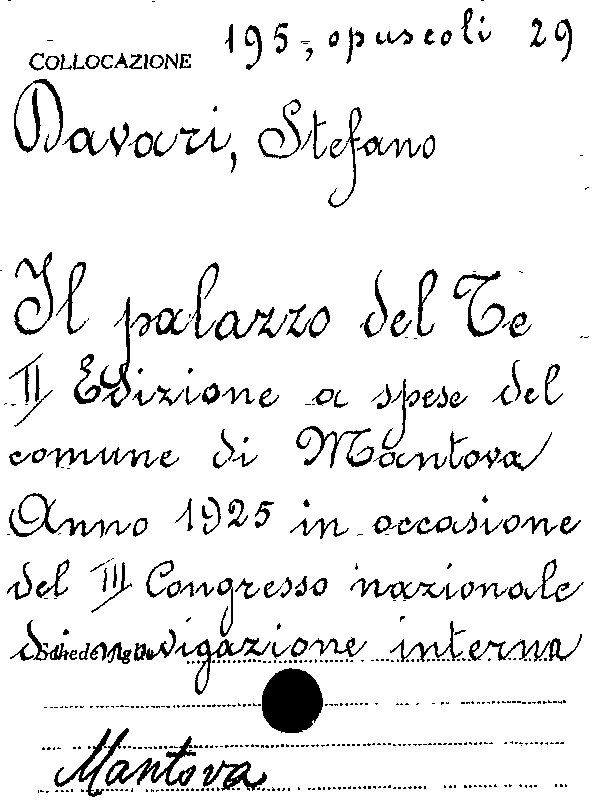 COLLOCAZIONE 195, opuscoli 29
Davari, Stefano
Il palazzo del Te
II Edizione a spese del
comune di Mantova
Anno 1925 in occasione
del III Congresso nazionale
di navigazione interna
Mantova